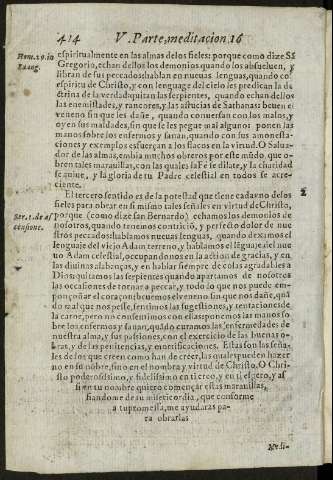 414 V. Parte, meditacion 16
Hom. 29. in
Euang.
espiritualmente en las almas delos fieles: porque como dize Sã
Gregorio, echan dellos los demonios, quando los absueluen, y
libran de sus peccados: hablan en nueuas lenguas, quando cõ
espiritu de Christo, y con lenguage del cielo les predican la do
ctrina de la verdad: quitan las serpientes, quando echan dellos
las enemistades, y rancores, y las astucias de Sathanas: beuen el
veneno sin que les dañe, quando conuersan con los malos, y
oyen sus maldades, sin que se les pegue mal alguno: ponen las
manos sobre los enfermos y sanan, quando con sus amonesta-
ciones y exemplos esfuerçan a los flacos en la virtud. O Salua-
dor de las almas, embia muchos obreros por este mũdo, que o-
bren tales marauillas, con las quales la Fe se dilate, y la charidad
se auiue, y la gloria de tu Padre celestial en todos se acre-
ciente.
El tercero sentido es de la potestad que tiene cada vno destos
fieles para obrar en si mismo tales señales en virtud de Christo,
2
Ser. 1. de as
censione.
porque (como dize san Bernardo) echamos los demonios de
nosotros, quando tenemos contriciõ, y perfecto dolor de nue
stros peccados: hablamos nueuas lenguas, quando dexamos el
lenguaje del viejo Adam terreno, y hablamos el lẽguaje del nue
uo Adam celestial, occupandonos en la action de gracias, y en
las diuinas alabanças, y en hablar siempre de cosas agradables a
Dios: quitamos las serpientes quando apartamos de nosotros
las occasiones de tornar a peccar, y todo lo que nos puede em-
ponçoñar el coraçon: beuemos el veneno sin que nos dañe, quã
do mal que nos pesse, sentimos las sugestiones, y tentaciones de
la carne, pero no consentimos con ellas: ponemos las manos so
bre los enfermos y sanan, quãdo curamos las enfermedades de
nuestra alma, y sus pasiones, con el exercicio de las buenas o-
bras, y de las penitencias, y mortificaciones. Estas son las seña-
les de los que creen como han de creer, las quales pueden hazer
no en su nõbre, sino en el nombre y virtud de Christo. O Chri
sto poderosissimo, y fidelissimo en ti creo, y en ti espero, y assi
en tu nombre quiero començar estas marauillas,
fiandome de tu misericordia, que conforme
a tu promessa, me ayudaras pa-
ra obrarlas
Medi-